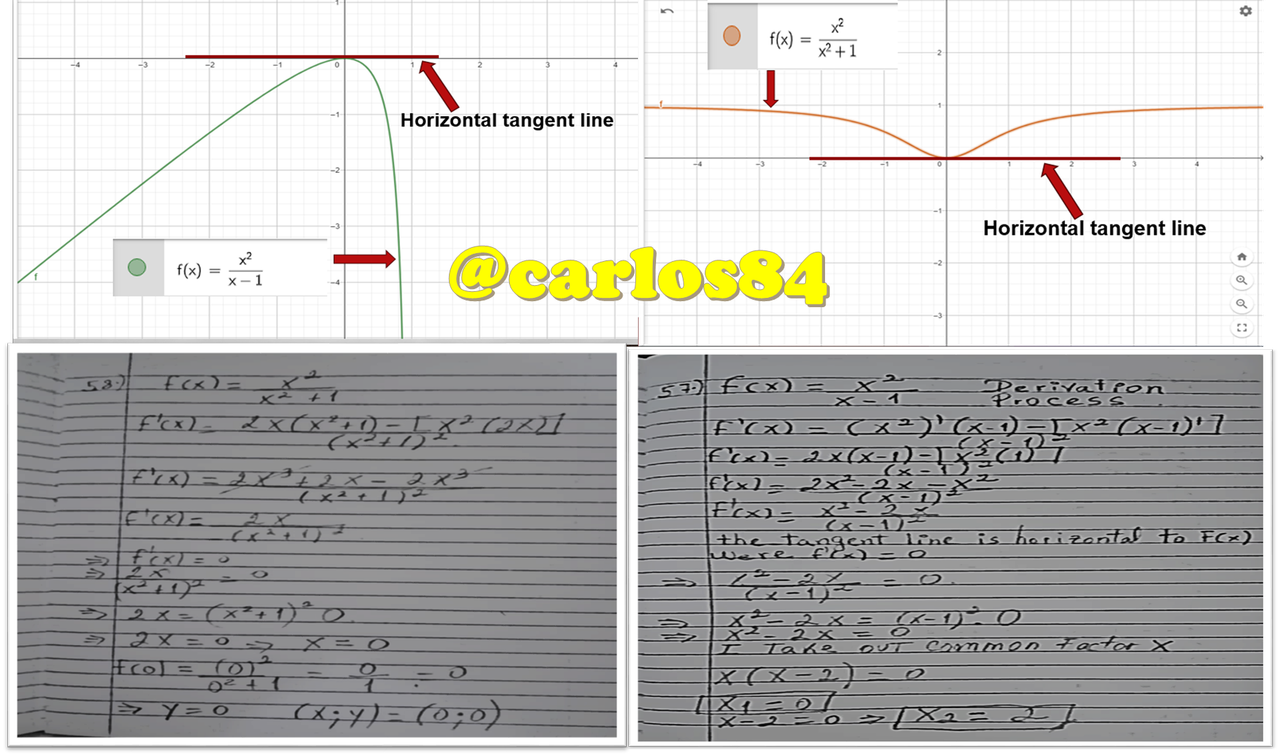 f(x) = x²/(x − 1)
Horizontal tangent line
f
1
-4 -3 -2 -1 0 1 2 3 4
-1
-2
-3
-4
f(x) = x²/(x² + 1)
Horizontal tangent line
f
2
1
-4 -3 -2 -1 0 1 2 3 4
-1
-2
-3
@carlos84
53.) f(x) = x²/(x² + 1)
f'(x) = 2x(x²+1) – [x²(2x)]/(x²+1)²
f'(x) = 2x³ + 2x – 2x³/(x²+1)²
f'(x) = 2x/(x²+1)²
⇒ f'(x) = 0
⇒ 2x/(x²+1)² = 0
⇒ 2x = (x²+1)² 0
⇒ 2x = 0 ⇒ x = 0
f(0) = (0)²/0²+1 = 0/1 = 0
⇒ y = 0 (x;y) = (0;0)
57.) f(x) = x²/x-1 Derivation
Process
f'(x) = (x²)'(x-1) – [x²(x-1)']/(x-1)²
f'(x) = 2x(x-1) – [x²(1)]/(x-1)²
f'(x) = 2x² – 2x – x²/(x-1)²
f'(x) = x² – 2x/(x-1)²
the tangent line is horizontal to F(x)
were f'(x) = 0
⇒ x² – 2x/(x-1)² = 0.
⇒ x² – 2x = (x-1)². 0
⇒ x² – 2x = 0
I Take out common factor x
x(x-2) = 0
[x₁ = 0]
x-2 = 0 ⇒ [x₂ = 2]